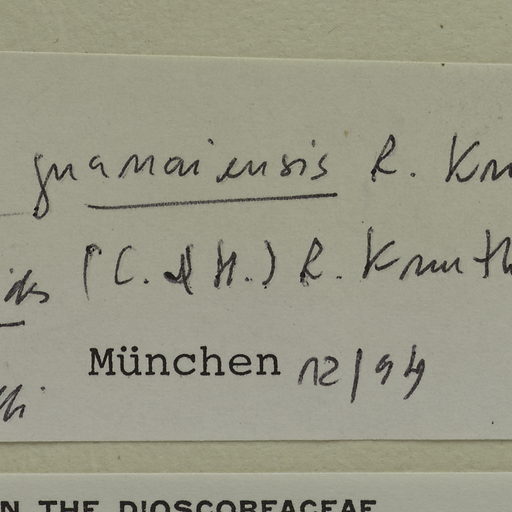 guanaiensis R. Knu
(C. & H.) R. Knuth
München 12/94
N THE DIOSCOREACEAE